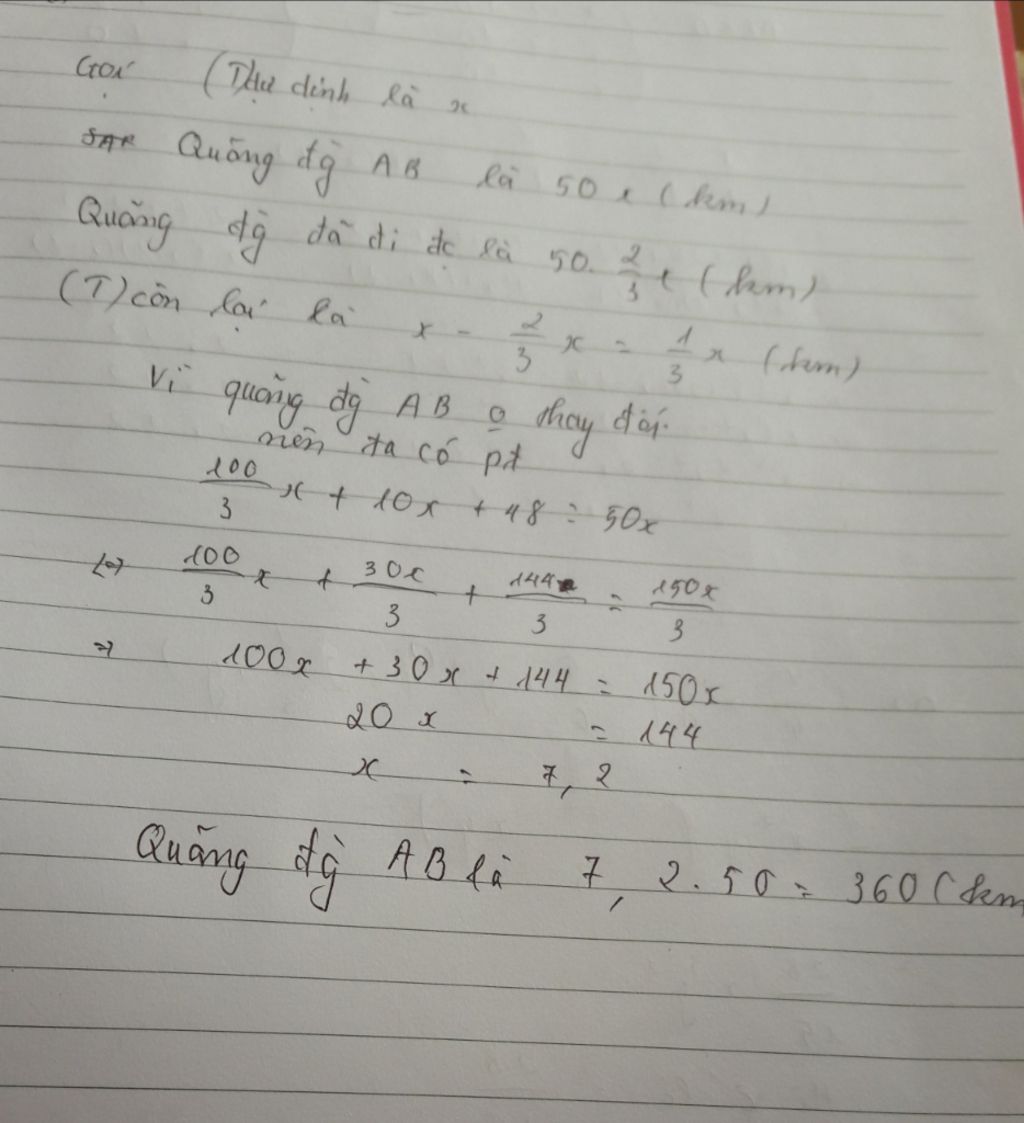 Gọi (T)dự định là x
Quãng đg̀ AB là 50x (km)
Quãng đg̀ đã đi đc là 50. 2/3 x (km)
(T) còn lại là x - 2/3 x = 1/3 x (km)
Vì quãng đg̀ AB o thay đổi
nên ta có pt
100/3 x + 10x + 48 = 50x
<=> 100/3 x + 30x/3 + 144/3 = 150x/3
=> 100x + 30x + 144 = 150x
20x = 144
x = 7,2
Quãng đg̀ AB là 7,2.50 = 360 (km